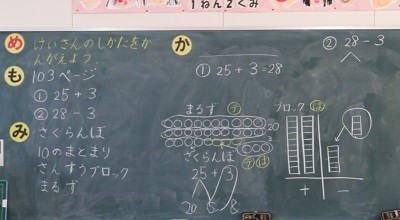 1ねん2くみ
め
けいさんのしかたをか
んがえよう.
も
103ページ
① 25+3
② 28-3
み
さくらんぼ
10のまとまり
さんすうブロック
まるず
か
① 25+3=28
まるず
20
さくらんぼ
25+3
20 5 8
ブロック
は
+ -
② 28-3